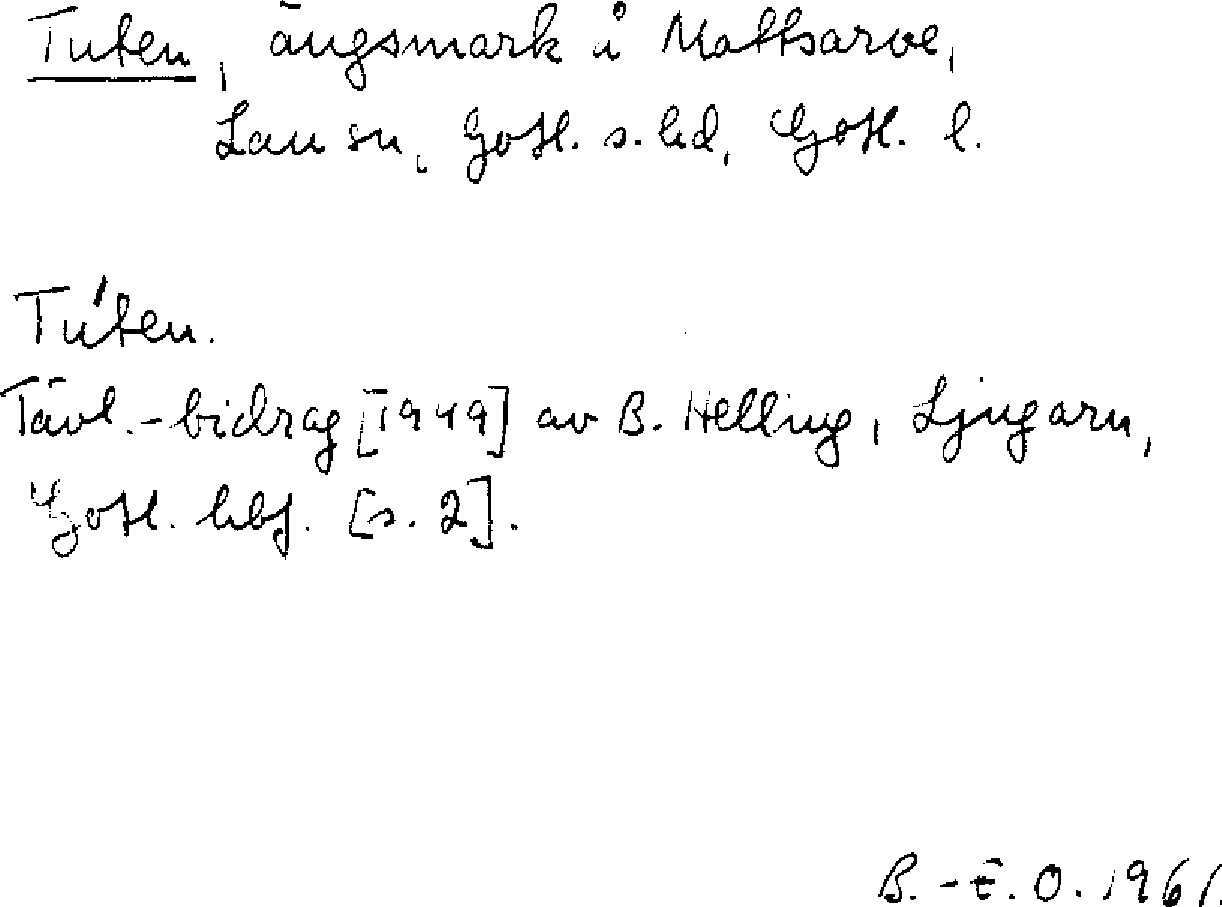 Tuten, ängsmark å Mattsarve,
Lau sn, Gotl. s. hd, Gotl. l.
Túten.
Tävl.-bidrag [1949] av B. Helling, Ljugarn,
Gotl. hbf. [s. 2].
B.-E. O. 1961.